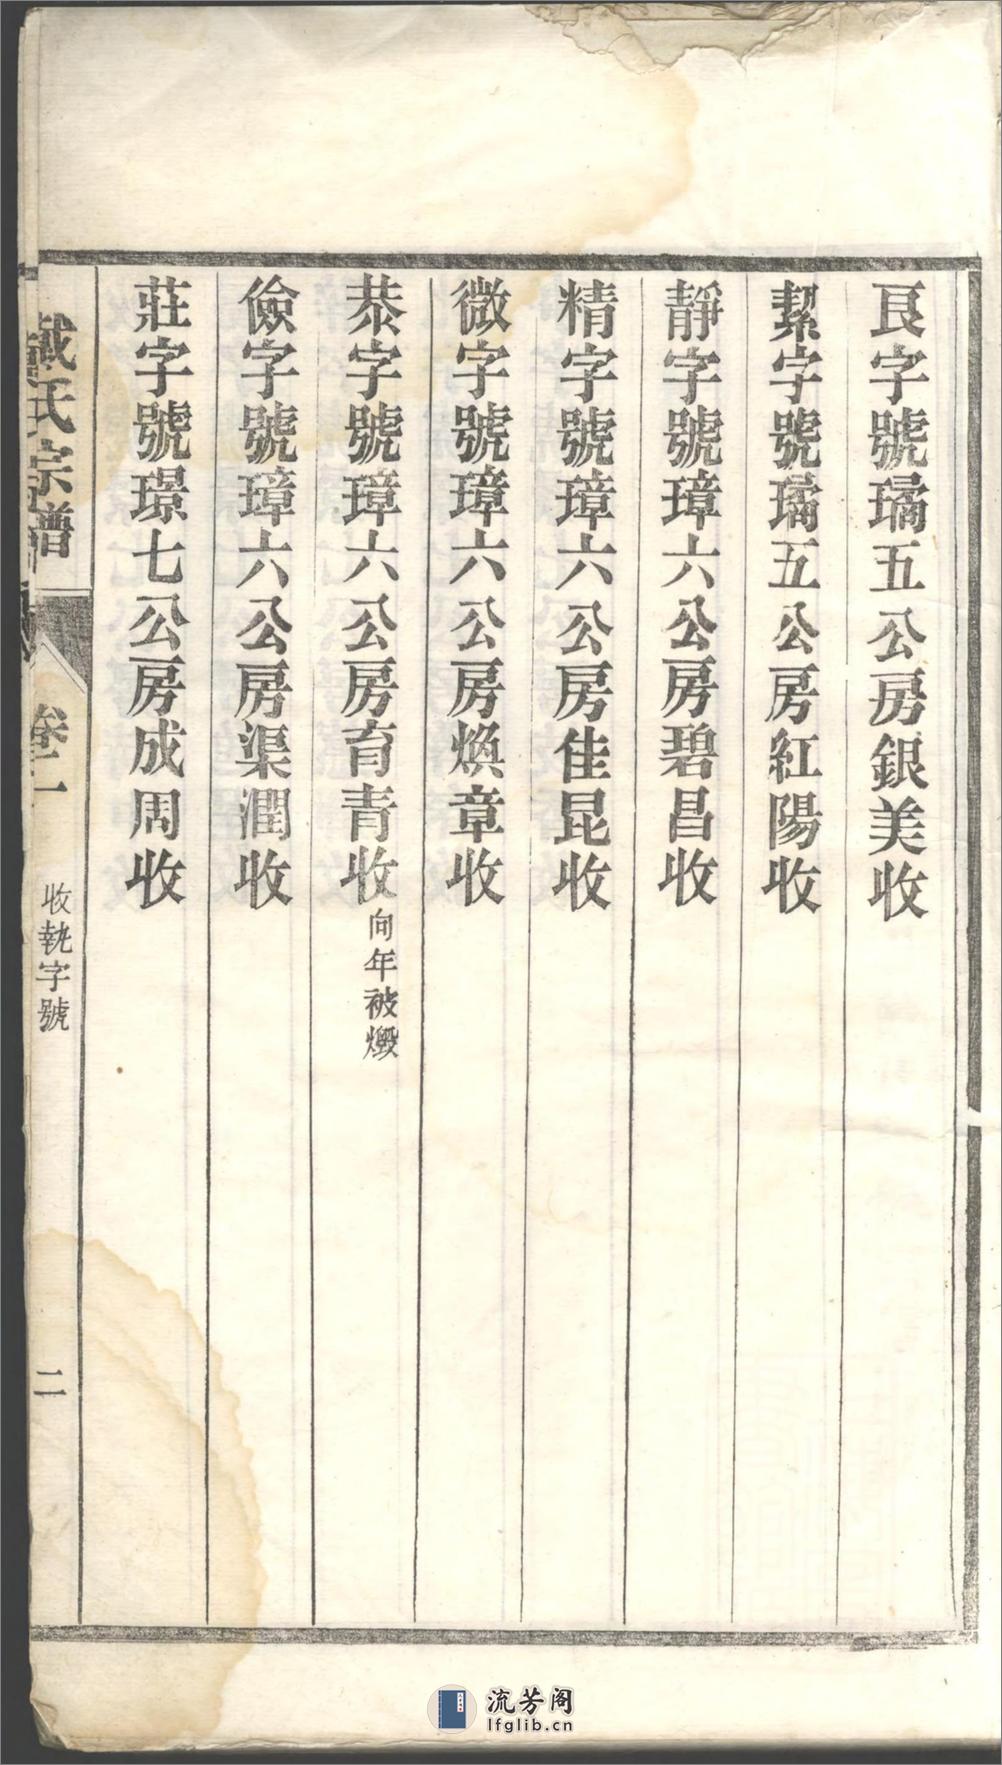 良字號璚五公房銀美收
絜字號璚五公房紅陽收
靜字號璋六公房碧昌收
精字號璋六公房佳昆收
微字號璋六公房煥章收
恭字號璋六公房育青收向年被燬
儉字號璋六公房渠潤收
莊字號璟七公房成周收
戴氏宗譜
卷二
收執字號
二
流芳阁
lfglib.cn